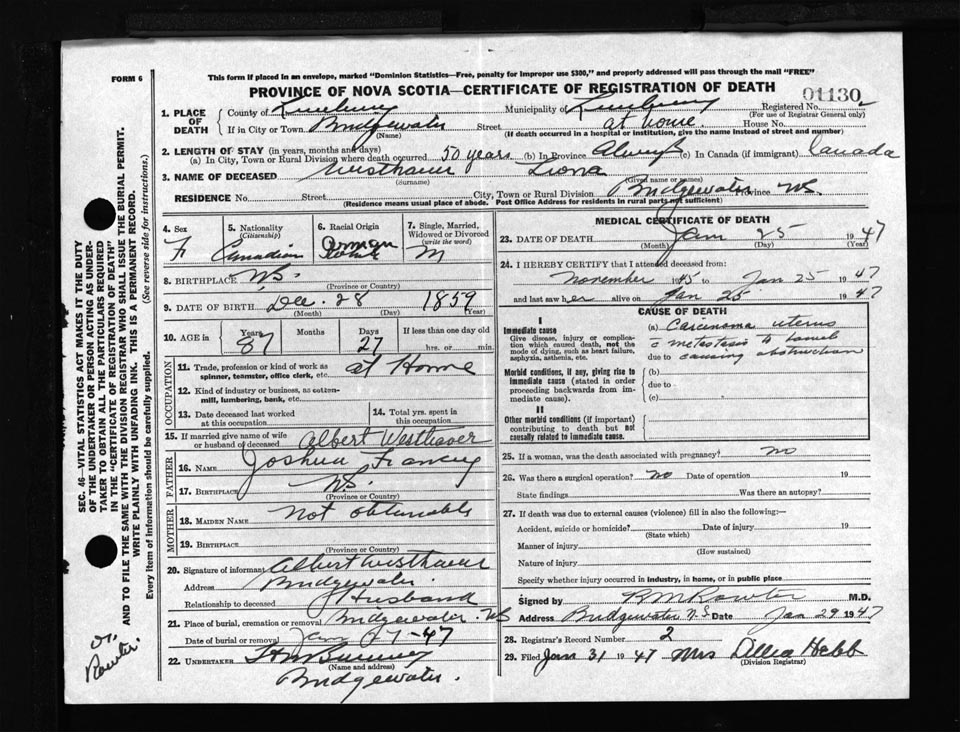 FORM 6
This form if placed in an envelope, marked "Dominion Statistics—Free, penalty for improper use $300," and properly addressed will pass through the mail "FREE"
PROVINCE OF NOVA SCOTIA—CERTIFICATE OF REGISTRATION OF DEATH
01130
1. PLACE OF DEATH
County of Lunenburg Municipality of Lunenburg Registered No. 2
(For use of Registrar General only)
If in City or Town Bridgewater Street at home. House No.
(Name) (If death occurred in a hospital or institution, give the name instead of street and number)
2. LENGTH OF STAY (in years, months and days)
(a) In City, Town or Rural Division where death occurred 50 years (b) In Province Always (c) In Canada (if immigrant) Canada
3. NAME OF DECEASED Westhaver Liona
(Surname) (Given name or names)
RESIDENCE No. Street City, Town or Rural Division Bridgewater Province NS
(Residence means usual place of abode. Post Office Address for residents in rural parts not sufficient)
4. Sex F
5. Nationality (Citizenship) Canadian
6. Racial Origin German White
7. Single, Married, Widowed or Divorced (write the word) M
8. BIRTHPLACE N.S.
(Province or Country)
9. DATE OF BIRTH Dec. 28 1859
(Month) (Day) (Year)
10. AGE in Years 87 Months Days 27 If less than one day old hrs. or min.
OCCUPATION
11. Trade, profession or kind of work as spinner, teamster, office clerk, etc. at Home
12. Kind of industry or business, as cotton-mill, lumbering, bank, etc.
13. Date deceased last worked at this occupation
14. Total yrs. spent in this occupation
15. If married give name of wife or husband of deceased Albert Westhaver
FATHER
16. NAME Joshua
17. BIRTHPLACE N.S.
(Province or Country)
MOTHER
18. MAIDEN NAME Not obtainable
19. BIRTHPLACE
(Province or Country)
20. Signature of informant Albert Westhaver
Address Bridgewater.
Relationship to deceased Husband
21. Place of burial, cremation or removal Bridgewater. NS
Date of burial or removal Jan 27-47
22. UNDERTAKER
(Name and address)
Bridgewater.
MEDICAL CERTIFICATE OF DEATH
23. DATE OF DEATH Jan 25 1947
(Month) (Day) (Year)
24. I HEREBY CERTIFY that I attended deceased from:
November 1945 to Jan 25 1947
and last saw her alive on Jan 25 1947
CAUSE OF DEATH
I
Immediate cause
Give disease, injury or complication which caused death, not the mode of dying, such as heart failure, asphyxia, asthenia, etc.
(a) Carcinoma uterus
c metastasis to bowel
due to causing obstruction
Morbid conditions, if any, giving rise to immediate cause (stated in order proceeding backwards from immediate cause).
(b)
due to
(c)
II
Other morbid conditions (if important) contributing to death but not causally related to immediate cause.
25. If a woman, was the death associated with pregnancy? no
26. Was there a surgical operation? no Date of operation 19
State findings Was there an autopsy?
27. If death was due to external causes (violence) fill in also the following:—
Accident, suicide or homicide? Date of injury 19
(State which)
Manner of injury
(How sustained)
Nature of injury
Specify whether injury occurred in industry, in home, or in public place
Signed by M.D.
Address Bridgewater N.S. Date Jan 29 1947
28. Registrar's Record Number 2
29. Filed Jan 31 1947 Mrs Hebb
(Division Registrar)
SEC. 46—VITAL STATISTICS ACT MAKES IT THE DUTY
OF THE UNDERTAKER OR PERSON ACTING AS UNDER-
TAKER TO OBTAIN ALL THE PARTICULARS REQUIRED
IN THE "CERTIFICATE OF REGISTRATION OF DEATH"
AND TO FILE THE SAME WITH THE DIVISION REGISTRAR WHO SHALL ISSUE THE BURIAL PERMIT.
WRITE PLAINLY WITH UNFADING INK. THIS IS A PERMANENT RECORD.
Every item of information should be carefully supplied. (See reverse side for instructions.)
Dr.